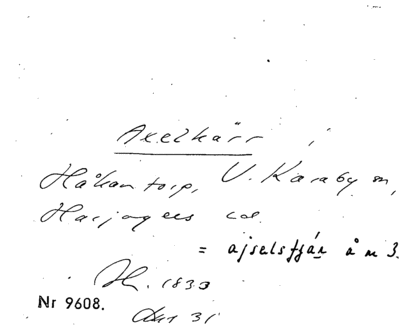 Axelkärr i
Håkantorp, V. Karaby sn,
Harjagers
= ajselstjár å m 3.
1833
Nr 9608.
31